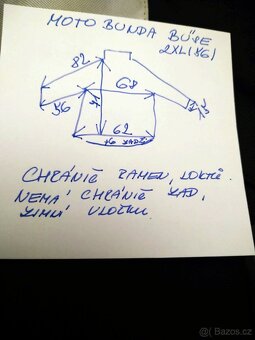 MOTO BUNDA BÜSE
2XL (56)
82
68
56
62
CHRÁNIČ RAMEN, LOKTŮ.
NEMÁ CHRÁNIČ ZAD,
ZIMNÍ VLOŽKU.
© Bazos.cz